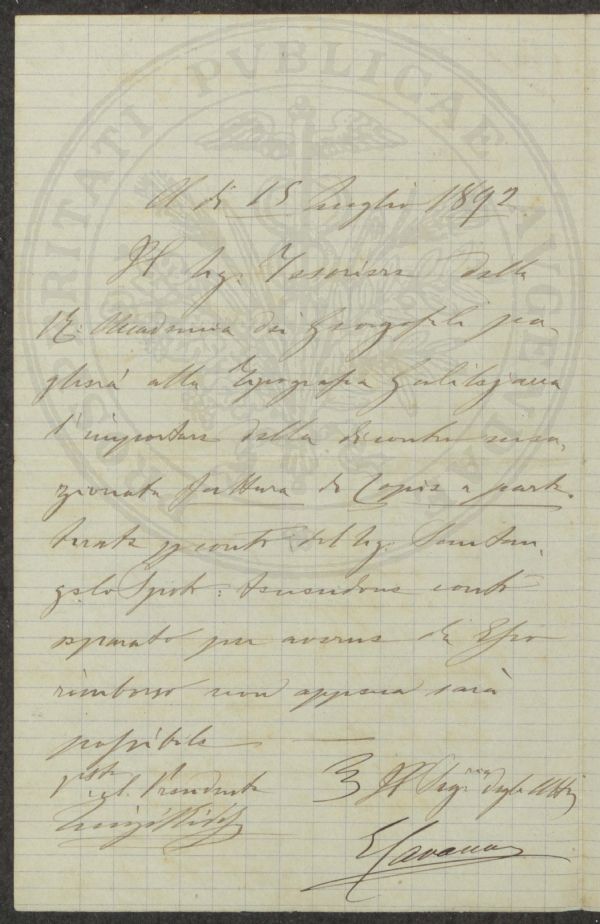 A dì 15 Luglio 1892
Il Sig. Tesoriere della
R. Accademia dei Georgofili pa,
gherà alla Tipografia Galilejana
l'importare della di contro
fattura di Copie a parte
tirate p conto del Sig. Santan,
gelo Spoto: tenendone conto
separato per averne da Esso
rimborso non appena sarà
possibile
Vto il Presidente
Il Segr. degli Atti
PROSPERITATI PVBLICAE AVGENDAE